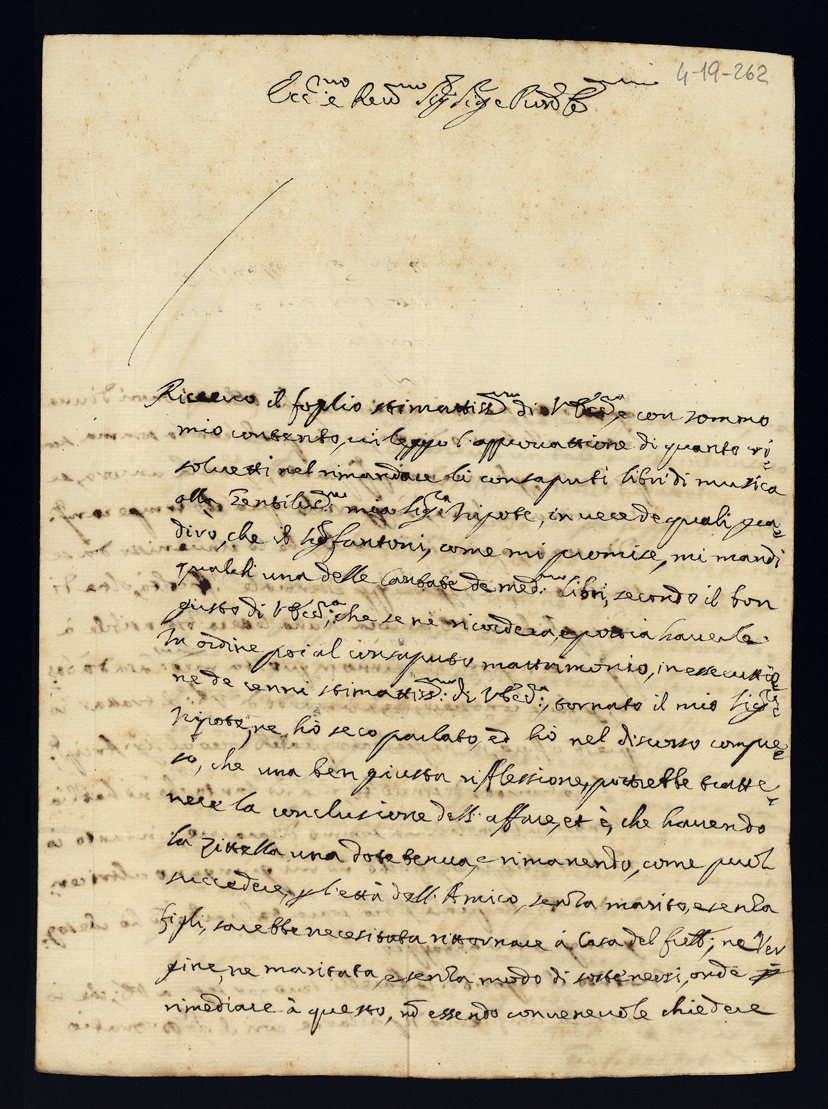 4-19-262
Ecc:mo e Rev:mo Sig: Sig: e Pron
Ricevo il foglio stimatiss:mo di V. Ecc:za, e con sommo
mio contento, vi leggo l'approvattione di quanto ri=
solvetti nel rimandare li consaputi libri di musica
alla Gentiliss:ma mia Sig:ra Nipote, in vece de quali gra=
dirò, che il Sig: Fantoni, come mi promise, mi mandi
qualch una delle Cantate de med:mi libri, secondo il bon
gusto di V. Ecc:za, che se ne ricorderà, e possia haverle.
In ordine poi al consaputo mattrimonio, in essecuttio=
ne de cenni stimatiss:mi di V. Ecc:za, tornato il mio Sig:re
Nipote, ne hò seco parlato, ed hò nel discorso compre=
so, che una ben giusta riflessione, potrebbe tratte=
nere la conclusione dell'affare, et è, che havendo
la zittella una dote tenua, e rimanendo, come puol
succedere, p l'ettà dell'Amico, senza marito, e senza
figli, sarebbe necesitata rittornare à Casa del frett:, ne Ver
gine, ne maritata, e senza modo di sostenersi, onde p
rimediare à questo, nō essendo convenevole chiedere